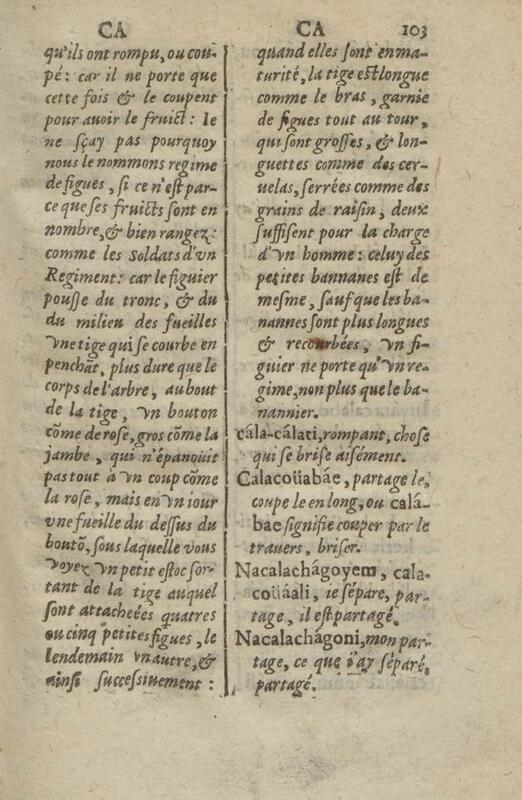 CA
qu'ils ont rompu, ou cou-
pé : car il ne porte que
cette fois & le coupent
pour auoir le fruict : Ie
ne sçay pas pourquoy
nous le nommons regime
de figues, si ce n'est par-
ce que ses fruicts sont en
nombre, & bien rangez :
comme les soldats d'vn
Regiment : car le figuier
pousse du tronc, & du
du milieu des fueilles
vne tige qui se courbe en
penchãt, plus dure que le
corps de l'arbre, au bout
de la tige, vn bouton
cõme de rose, gros cõme la
jambe, qui n'épanoüit
pas tout à vn coup cõme
la rose, mais en vn iour
vne fueille du dessus du
boutõ, sous laquelle vous
voyez vn petit estoc sor-
tant de la tige auquel
sont attacheées quatres
ou cinq petites figues, le
lendemain vn autre, &
ainsi successiuement :
CA 103
quand elles sont en ma-
turité, la tige est longue
comme le bras, garnie
de figues tout au tour,
qui sont grosses, & lon-
guettes comme des cer-
uelas, serrées comme des
grains de raisin, deux
suffisent pour la charge
d'vn homme : celuy des
petites bannanes est de
mesme, sauf que les ba-
nannes sont plus longues
& recourbées, vn fi-
guier ne porte qu'vn re-
gime, non plus que le ba-
nannier.
cála-cálati, rompant, chose
qui se brise aisément.
Calacoüabáe, partage le,
coupe le en long, ou calá-
bae signifie couper par le
trauers, briser.
Nacalachágoyem, cala-
coüáali, ie sépare, par-
tage, il est partagé.
Nacalachágoni, mon par-
tage, ce que i'ay séparé,
partagé.